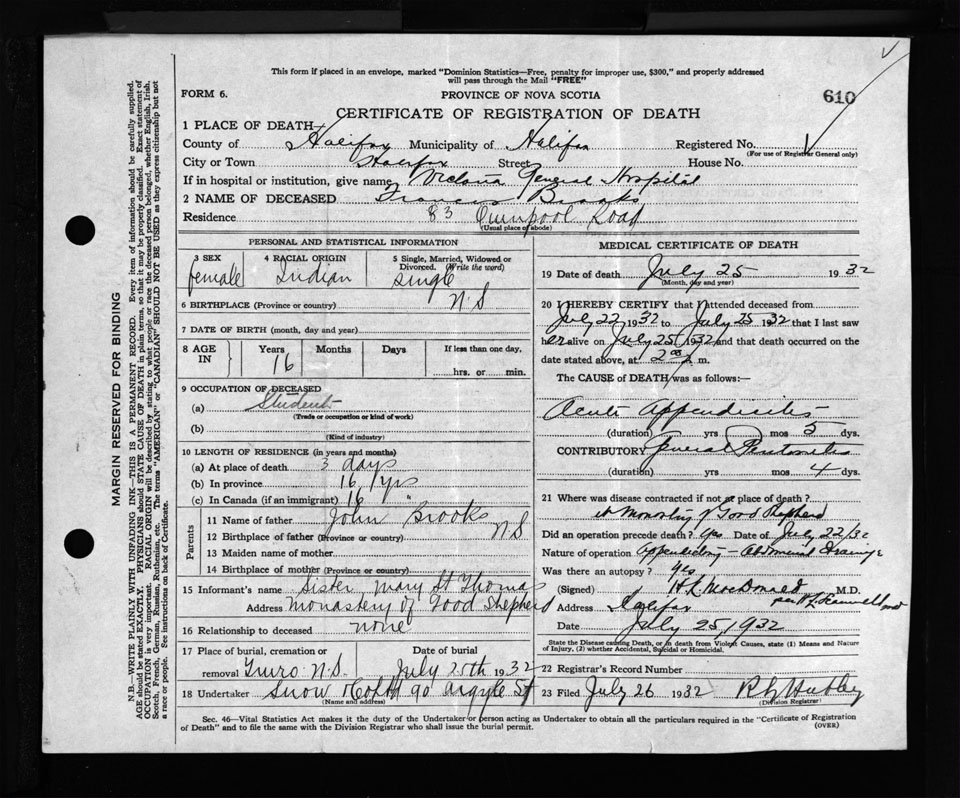 This form if placed in an envelope, marked "Dominion Statistics—Free, penalty for improper use, $300," and properly addressed
will pass through the Mail "FREE"
FORM 6. PROVINCE OF NOVA SCOTIA 610
CERTIFICATE OF REGISTRATION OF DEATH
1 PLACE OF DEATH—
County of Halifax Municipality of Halifax Registered No.
(For use of Registrar General only)
City or Town Halifax Street House No.
If in hospital or institution, give name Victoria General Hospital
2 NAME OF DECEASED Francis Brooks
Residence 83 Quinpool Road
(Usual place of abode)
PERSONAL AND STATISTICAL INFORMATION
3 SEX 4 RACIAL ORIGIN 5 Single, Married, Widowed or
Divorced. (Write the word)
female Indian single
6 BIRTHPLACE (Province or country) N S
7 DATE OF BIRTH (month, day and year)
8 AGE IN Years Months Days If less than one day,
16 hrs. or min.
9 OCCUPATION OF DECEASED
(a) Student
(Trade or occupation or kind of work)
(b)
(Kind of industry)
10 LENGTH OF RESIDENCE (in years and months)
(a) At place of death 3 days
(b) In province 16 yrs
(c) In Canada (if an immigrant) 16 "
Parents
11 Name of father John Brooks
12 Birthplace of father (Province or country) N S
13 Maiden name of mother
14 Birthplace of mother (Province or country)
15 Informant's name Sister Mary St Thomas
Address Monastery of Good Shepherd
16 Relationship to deceased none
17 Place of burial, cremation or Date of burial
removal Truro N.S. July 25th 1932
18 Undertaker Snow & Co Ltd 90 Argyle St
(Name and address)
MEDICAL CERTIFICATE OF DEATH
19 Date of death July 25 1932
(Month, day and year)
20 I HEREBY CERTIFY that I attended deceased from
July 22 1932 to July 25 1932 that I last saw
her alive on July 25 1932 and that death occurred on the
date stated above, at 2 m.
The CAUSE of DEATH was as follows:—
Acute Appendicitis
(duration) yrs mos 5 dys.
CONTRIBUTORY General Peritonitis
(duration) yrs mos 4 dys.
21 Where was disease contracted if not at place of death?
at Monastery of Good Shepherd
Did an operation precede death? yes Date of July 22/32
Nature of operation Appendectomy — Abdominal Drainage
Was there an autopsy? yes
(Signed) H K MacDonald M.D.
Address Halifax
Date July 25, 1932
State the Disease causing Death, or in death from Violent Causes, state (1) Means and Nature
of Injury, (2) whether Accidental, Suicidal or Homicidal.
22 Registrar's Record Number
23 Filed July 26 1932
(Division Registrar)
Sec. 46—Vital Statistics Act makes it the duty of the Undertaker or person acting as Undertaker to obtain all the particulars required in the "Certificate of Registration
of Death" and to file the same with the Division Registrar who shall issue the burial permit. (OVER)
MARGIN RESERVED FOR BINDING
N.B.—WRITE PLAINLY WITH UNFADING INK—THIS IS A PERMANENT RECORD. Every item of information should be carefully supplied.
AGE should be stated EXACTLY. PHYSICIANS should STATE CAUSE OF DEATH in plain terms, so that it may be properly classified. Exact statement of
OCCUPATION is very important. RACIAL ORIGIN will be described by stating to what people or race the deceased person belonged, whether English, Irish,
Scotch, French, German, Russian, Ruthenian, etc. The terms "AMERICAN" or "CANADIAN" SHOULD NOT BE USED as they express citizenship but not
a race or people. See instructions on back of Certificate.